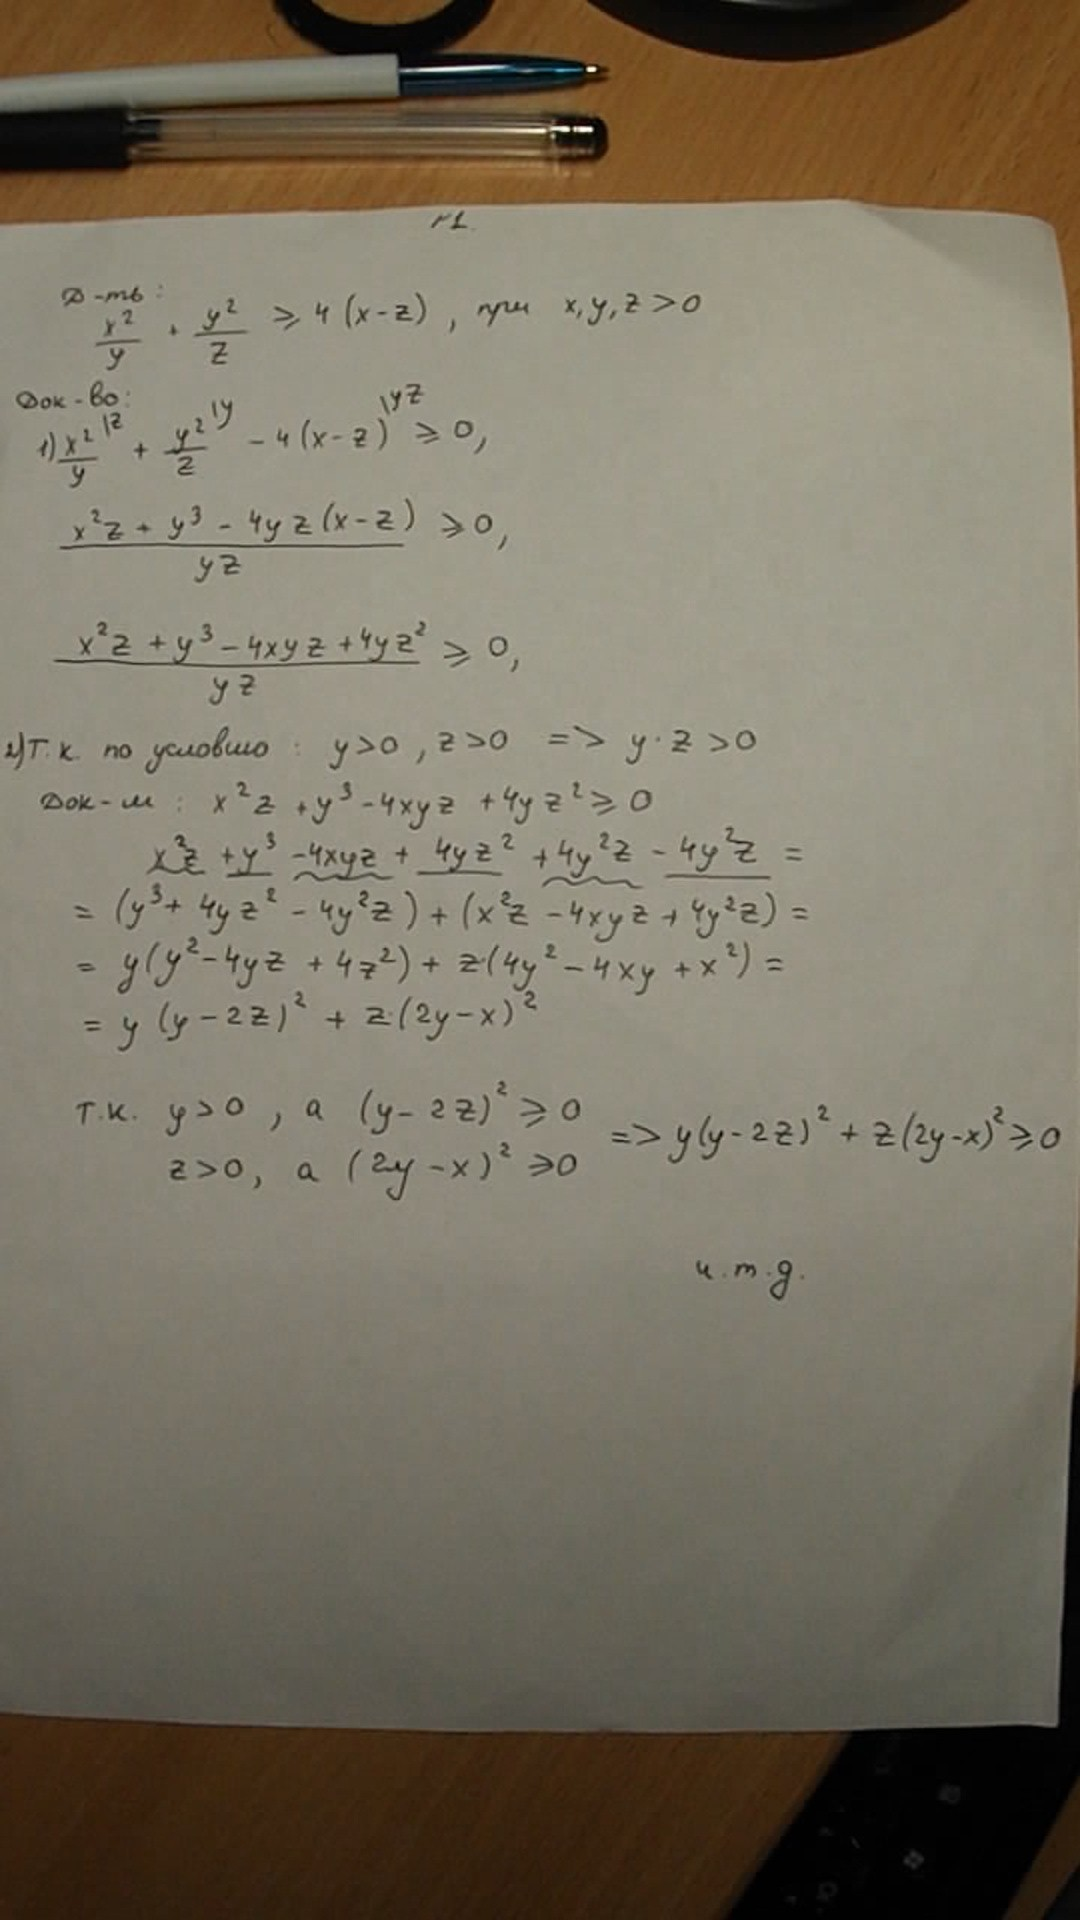 №1.
Д-ть:
x²/y + y²/z ≥ 4(x-z), при x,y,z>0
Док-во:
1) x²/y |z + y²/z |y - 4(x-z) |yz ≥ 0,
(x²z + y³ - 4yz(x-z))/yz ≥ 0,
(x²z + y³ - 4xyz + 4yz²)/yz ≥ 0,
2) Т.к. по условию: y>0, z>0 => y·z>0
Док-м: x²z + y³ - 4xyz + 4yz² ≥ 0
x²z + y³ - 4xyz + 4yz² + 4y²z - 4y²z =
= (y³ + 4yz² - 4y²z) + (x²z - 4xyz + 4y²z) =
= y(y² - 4yz + 4z²) + z·(4y² - 4xy + x²) =
= y(y-2z)² + z·(2y-x)²
т.к. y>0, а (y-2z)² ≥ 0
z>0, а (2y-x)² ≥ 0 => y(y-2z)² + z(2y-x)² ≥ 0
ч.т.д.